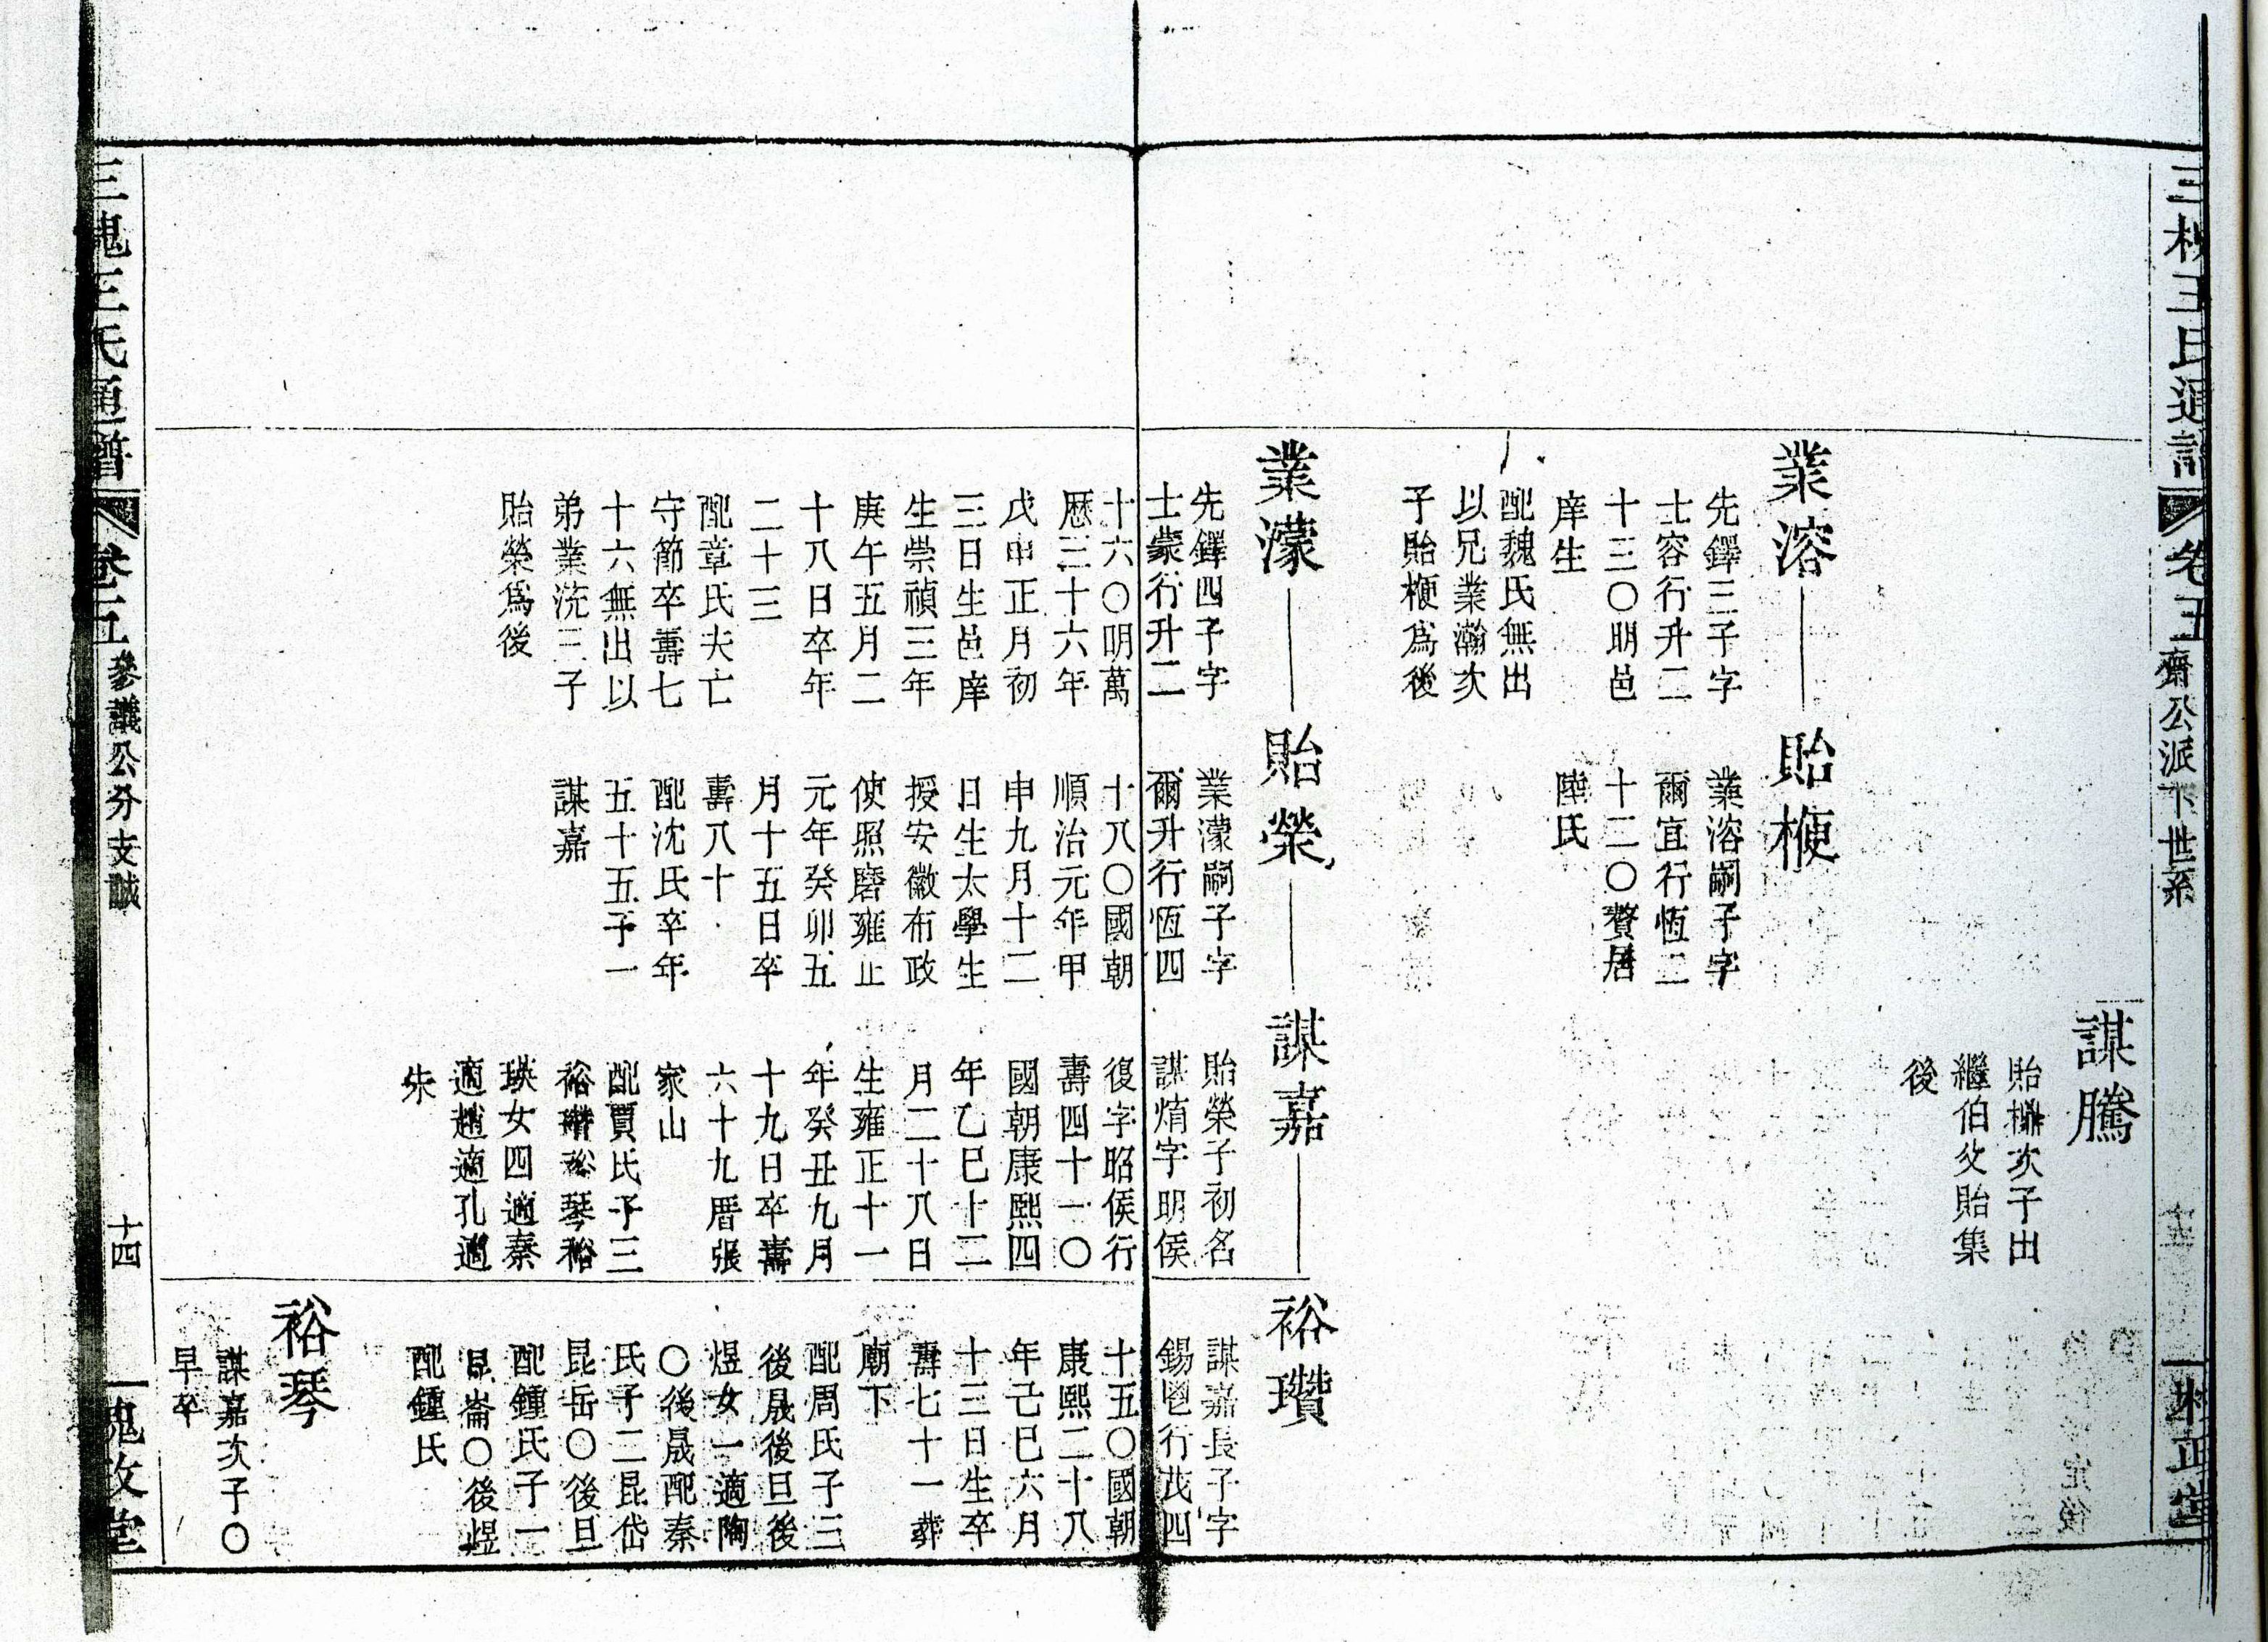 三槐王氏通譜
卷五
齊公派下世系
槐正堂
謀騰
貽櫹次子出
繼伯父貽集
後
業溶
先鐸三子字
士容行升二
十三〇明邑
庠生
配魏氏無出
以兄業瀚次
子貽楩爲後
貽楩
業溶嗣子字
爾宜行恆二
十二〇贅居
陸氏
業濛
先鐸四子字
士蒙行升二
十六〇明萬
歷三十六年
戊申正月初
三日生邑庠
生崇禎三年
庚午五月二
十八日卒年
二十三
配章氏夫亡
守節卒壽七
十六無出以
弟業洸三子
貽榮爲後
貽榮
業濛嗣子字
爾升行恆四
十八〇國朝
順治元年甲
申九月十二
日生太學生
授安徽布政
使照磨雍正
元年癸卯五
月十五日卒
壽八十
配沈氏卒年
五十五子一
謀嘉
謀嘉
貽榮子初名
謀焴字明侯
復字昭侯行
壽四十一〇
國朝康熙四
年乙巳十二
月二十八日
生雍正十一
年癸丑九月
十九日卒壽
六十九厝張
家山
配賈氏子三
裕瓚裕琴裕
瑛女四適秦
適趙適孔適
朱
裕瓚
謀嘉長子字
錫鬯行茂四
十五〇國朝
康熙二十八
年己巳六月
十三日生卒
壽七十一葬
廟下
配周氏子三
後晟後旦後
煜女一適陶
〇後晟配秦
氏子二昆岱
昆岳〇後旦
配鍾氏子一
昆崙〇後煜
配鍾氏
裕琴
謀嘉次子〇
早卒
三槐王氏通譜
卷五
參議公分支誠
十四
槐政堂